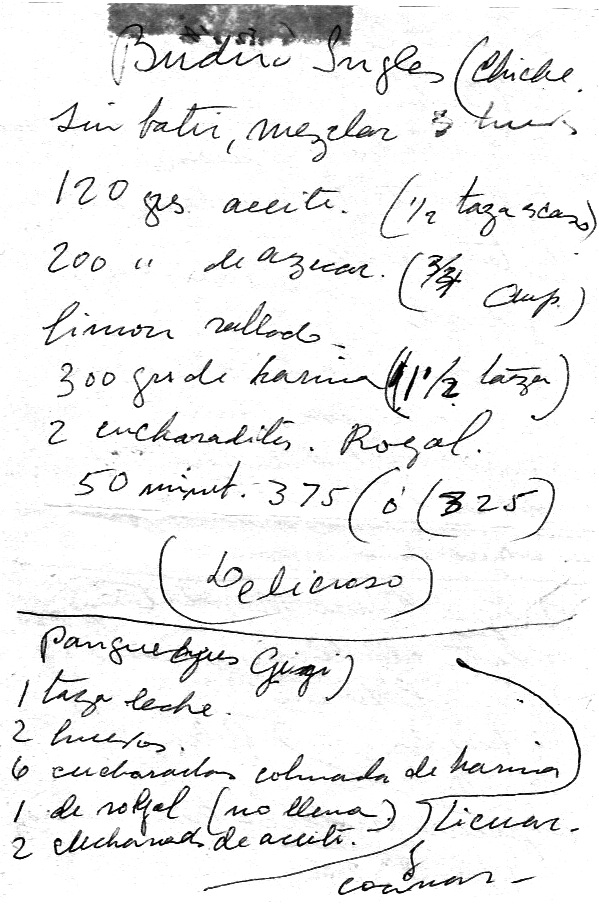 Budin Ingles (Chiche.
Sin batir, mezclar 3 huevos
120 grs aceite. (1/2 taza escaso)
200 " de azucar. (3/4 cup.)
limon rallado
300 grs de harina (1 1/2 taza)
2 cucharaditas. Royal.
50 minut. 375 (ó (325)
(Delicioso)
Panqueques Gigi)
1 taza leche.
2 huevos.
6 cucharadas colmada de harina
1 de royal (no llena) Licuar.
2 cucharads de aceite.
y
cocinar